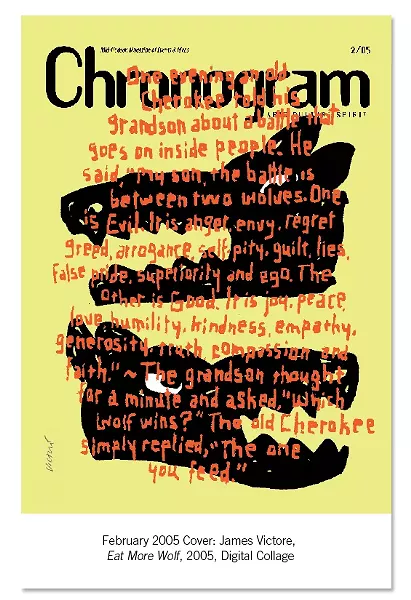 Mid-Hudson Magazine of Events & Ideas 2/05
Chronogram
ARTS CULTURE SPIRIT
One evening an old
Cherokee told his
grandson about a battle that
goes on inside people. He
said, "my son, the battle is
between two wolves. One
is Evil. It is anger, envy, regret
greed, arrogance, self, pity, guilt, lies,
false pride, superiority and ego. The
other is Good. It is joy, peace,
love, humility, kindness, empathy,
generosity, truth, compassion and
faith." ~ The grandson thought
for a minute and asked, "which
wolf wins?" The old Cherokee
simply replied, "The one
you feed."
February 2005 Cover: James Victore,
Eat More Wolf, 2005, Digital Collage